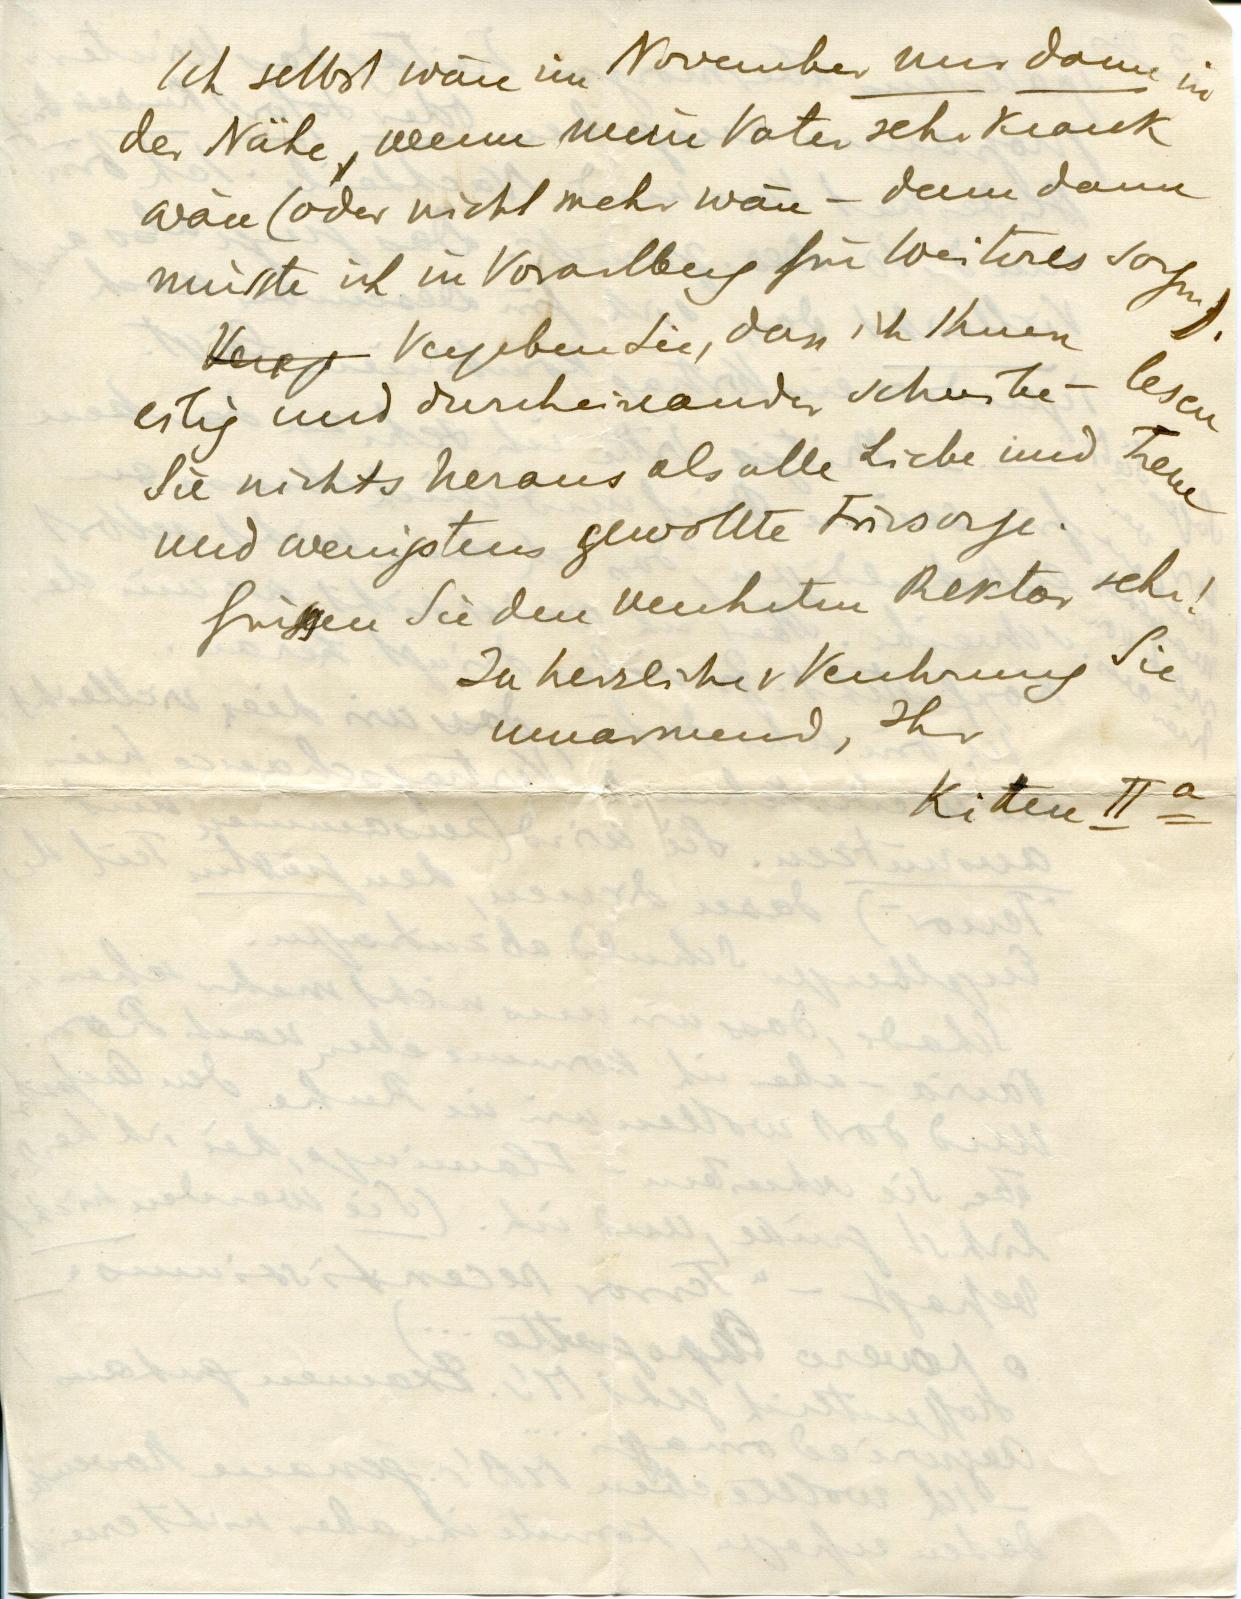 Ich selbst wäre im November nur dann in
der Nähe, wenn mein Vater sehr krank
wäre (oder nicht mehr wäre – denn dann
müsste ich in Vorarlberg für Weiteres sorgen).
Vergeben Sie, dass ich Ihnen
eilig und durcheinander schreibe – lesen
Sie nichts heraus als alle Liebe und Treue
und wenigstens gewollte Fürsorge.
Grüssen Sie den verehrten Rektor sehr!
In herzlicher Verehrung Sie
umarmend, Ihr
Kitten II a